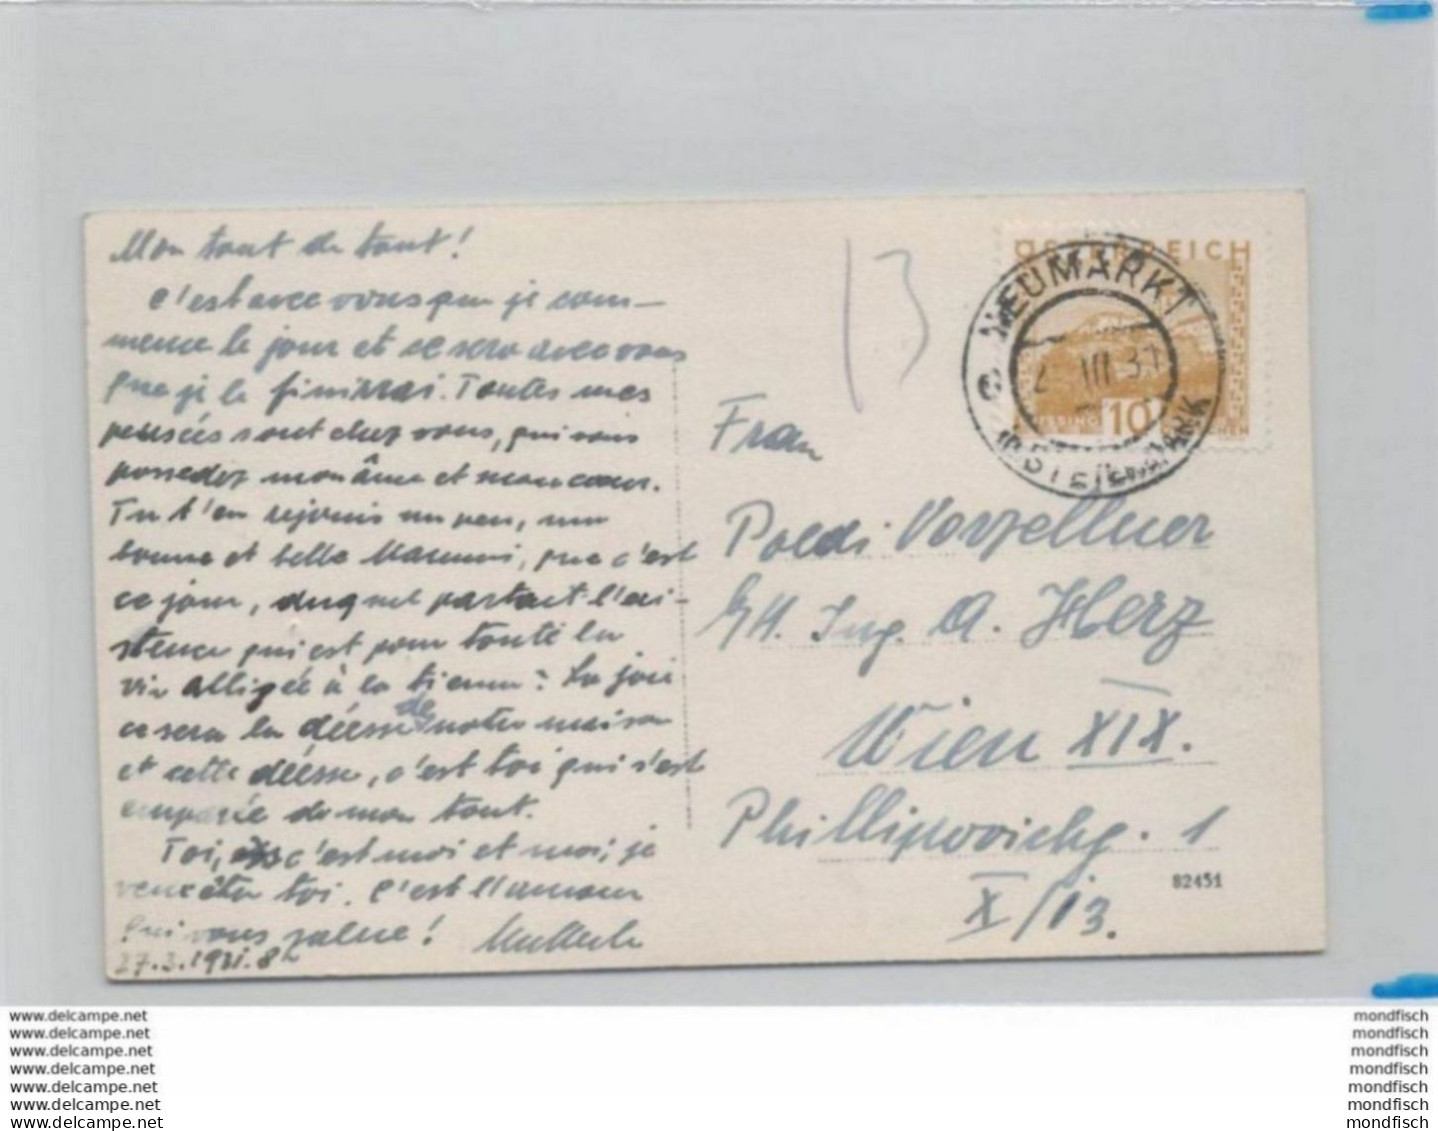 Mon tout du tout!
c'est avec vous que je com-
mence le jour et ce sera avec vous
que je le finirai. Toutes mes
pensées sont chez vous, qui vous
possedez mon âme et mon cœur.
Tu t'en rejouis un peu, ma
bonne et belle que c'est
ce jour, duquel partait l'exi-
stence qui est pour toute la
vie alligée à la tienne? La joie
ce sera la déesse de notre maison
et cette déesse, c'est toi qui s'est
emparée de mon tout.
Toi, c'est moi et moi, je
toi. C'est l'amour
qui vous salue!
27.3.1931. 8h
13
ÖSTERREICH
10
NEUMARKT
IN STEIERMARK
III 31
Frau
Poldi Vorzellner
Ing. A. Herz
Wien XIX.
Phillipovichg. 1
X/13.
82451
www.delcampe.net
www.delcampe.net
www.delcampe.net
www.delcampe.net
www.delcampe.net
www.delcampe.net
www.delcampe.net
mondfisch
mondfisch
mondfisch
mondfisch
mondfisch
mondfisch
mondfisch